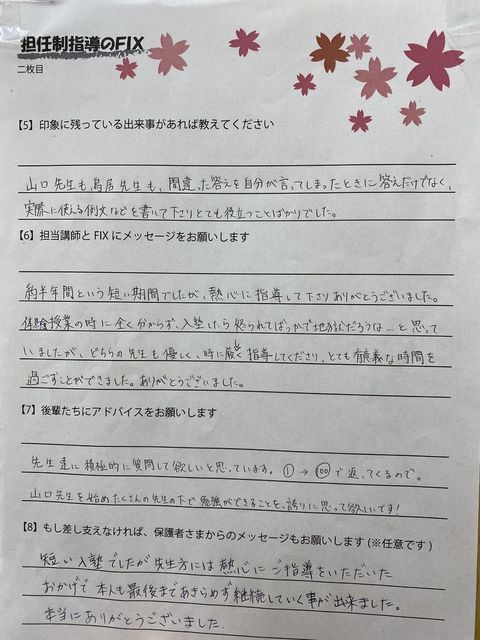 担任制指導のFIX
二枚目
【5】印象に残っている出来事があれば教えてください
山口先生も鳥居先生も、間違った答えを自分が言ってしまったときに答えだけでなく、
実際に使える例文などを書いて下さりとても役立つことばかりでした。
【6】担当講師とFIXにメッセージをお願いします
約半年間という短い期間でしたが、熱心に指導して下さりありがとうございました。
体験授業の時に全く分からず、入塾したら怒られてばっかで地獄だろうな…と思って
いましたが、どちらの先生も優しく、時に厳しく指導してくださり、とても有意義な時間を
過ごすことができました。ありがとうございました。
【7】後輩たちにアドバイスをお願いします
先生達に積極的に質問して欲しいと思っています。①→100で返ってくるので。
山口先生を始めたくさんの先生の下で勉強ができることを、誇りに思って欲しいです!
【8】もし差し支えなければ、保護者さまからのメッセージもお願いします(※任意です)
短い入塾でしたが先生方には熱心にご指導をいただいた
おかげで本人も最後まであきらめず継続していく事が出来ました。
本当にありがとうございました.